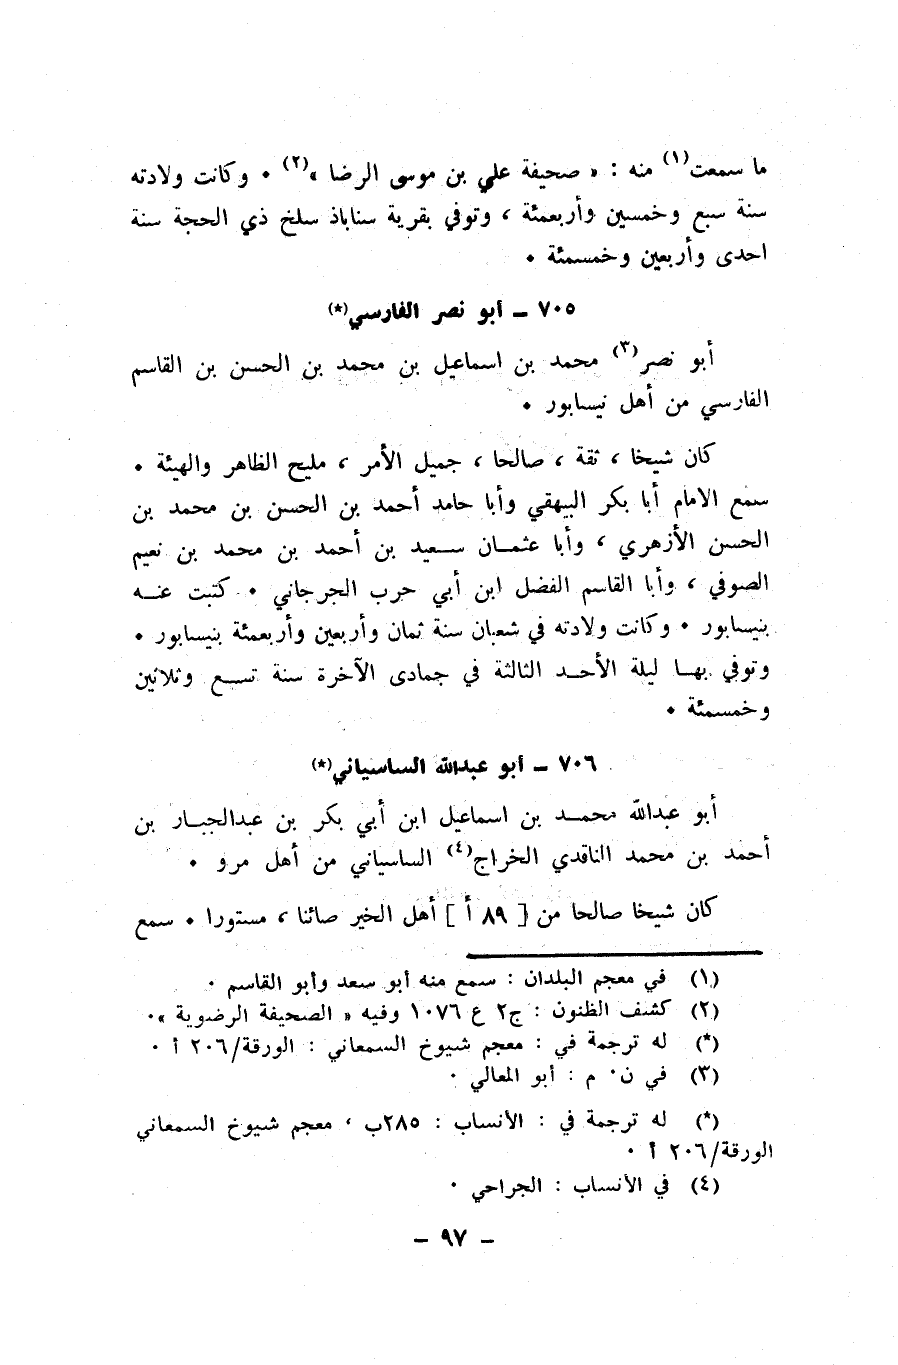 ما سمعت(١) منه : « صحيفة علي بن موسى الرضا »(٢) ٠ وكانت ولادته
سنة سبع وخمسين وأربعمئة ، وتوفي بقرية سناباذ سلخ ذي الحجة سنة
احدى وأربعين وخمسمئة ٠
٧٠٥ ــ أبو نصر الفارسي(*)
أبو نصر(٣) محمد بن اسماعيل بن محمد بن الحسن بن القاسم
الفارسي من أهل نيسابور ٠
كان شيخا ، ثقة ، صالحا ، جميل الأمر ، مليح الظاهر والهيئة ٠
سمع الامام أبا بكر البيهقي وأبا حامد أحمد بن الحسن بن محمد بن
الحسن الأزهري ، وأبا عثمــان ســعيد بن أحمد بن محمد بن نعيم
الصوفي ، وأبا القاسم الفضل ابن أبي حرب الجرجاني ٠ كتبت عنــه
بنيسابور ٠ وكانت ولادته في شعبان سنة ثمان وأربعين وأربعمئة بنيسابور ٠
وتوفي بهــا ليلة الأحــد الثالثة في جمادى الآخرة سنة تســع وثلاثين
وخمسمئة ٠
٧٠٦ ــ أبو عبدالله الساسياني(*)
أبو عبدالله محمــد بن اسماعيل ابن أبي بكر بن عبدالجبــار بن
أحمد بن محمد الناقدي الخراج(٤) الساسياني من أهل مرو ٠
كان شيخا صالحا من [ ٨٩ أ ] أهل الخير صائنا ، مستورا ٠ سمع
(١) في معجم البلدان : سمع منه أبو سعد وأبو القاسم ٠
(٢) كشف الظنون : ج٢ ع ١٠٧٦ وفيه « الصحيفة الرضوية »٠
(*) له ترجمة في : معجم شيوخ السمعاني : الورقة/٢٠٦ أ ٠
(٣) في ن٠ م : أبو المعالي ٠
(*) له ترجمة في : الأنساب : ٢٨٥ب ، معجم شيوخ السمعاني
الورقة/٢٠٦ أ ٠
(٤) في الأنساب : الجراحي ٠
ــ ٩٧ ــ